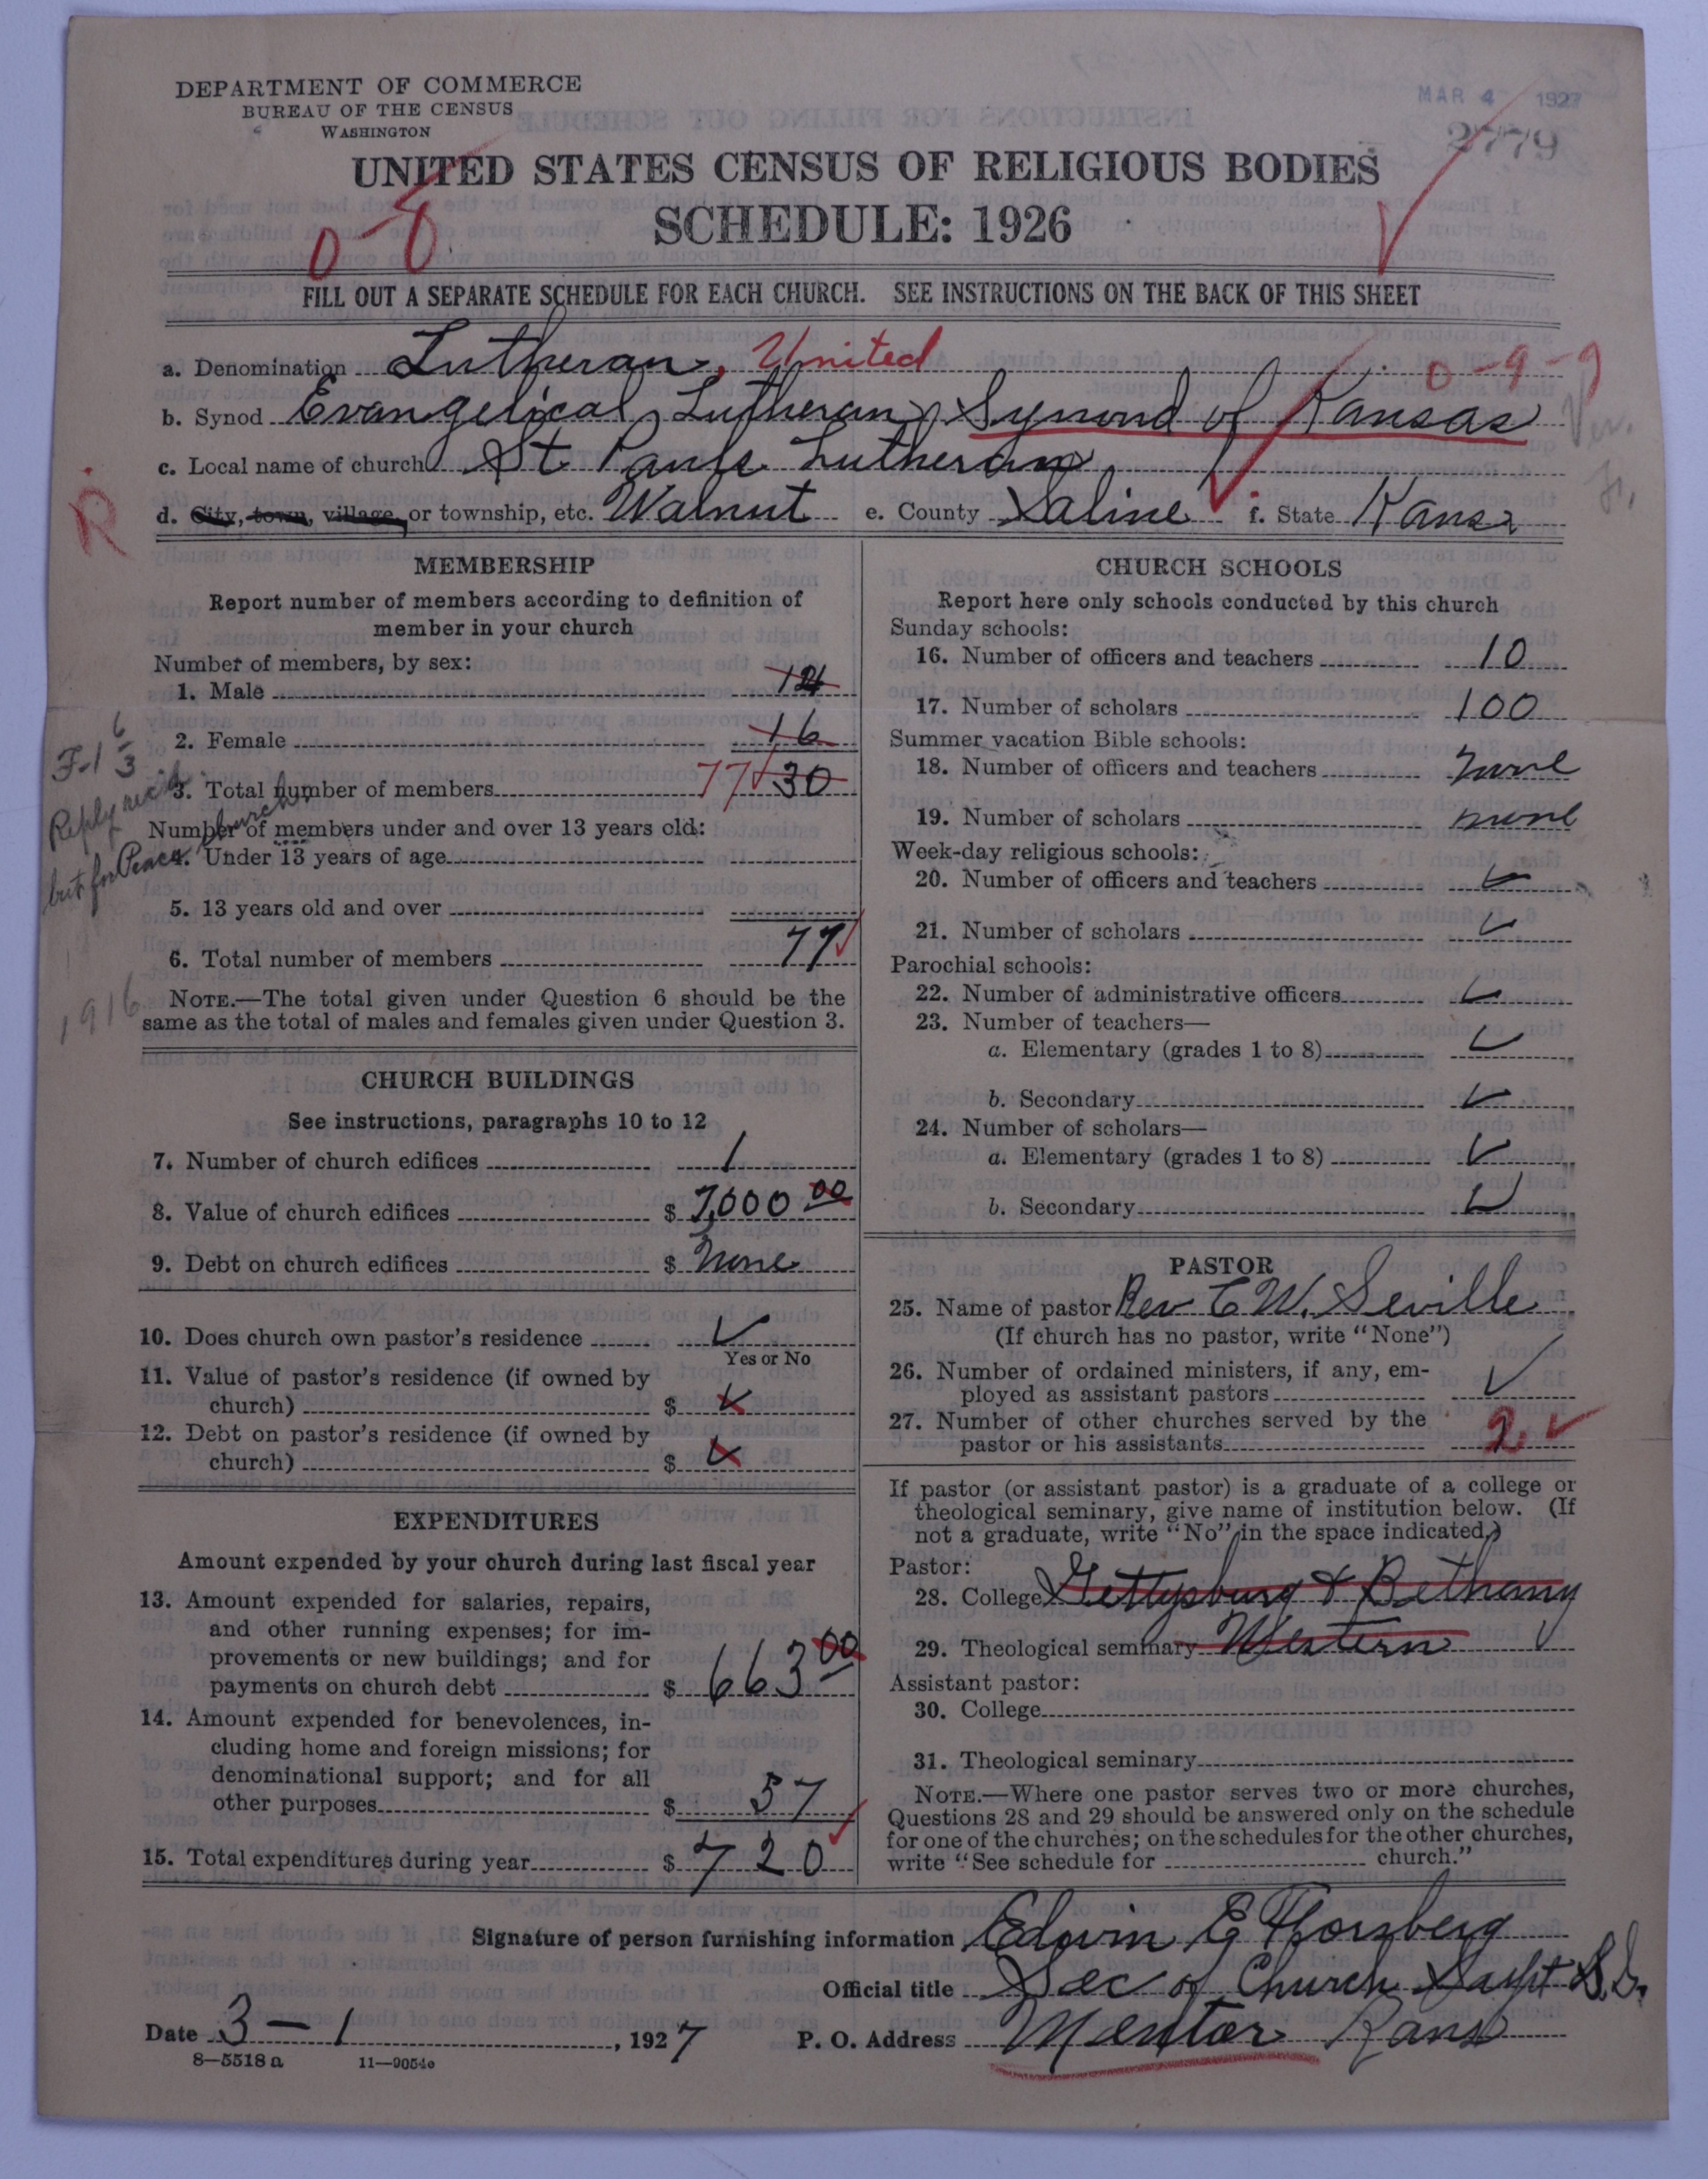 DEPARTMENT OF COMMERCE
BUREAU OF THE CENSUS
WASHINGTON
MAR 4 1927
2779
UNITED STATES CENSUS OF RELIGIOUS BODIES
SCHEDULE: 1926
0-8
FILL OUT A SEPARATE SCHEDULE FOR EACH CHURCH. SEE INSTRUCTIONS ON THE BACK OF THIS SHEET
a. Denomination Lutheran, United
0-9-9
b. Synod Evangelical Lutheran Synond of Kansas
Ver.
c. Local name of church St Pauls Lutheran
R
d. City, town, village, or township, etc. Walnut e. County Saline f. State Kans
MEMBERSHIP
Report number of members according to definition of
member in your church
Number of members, by sex:
1. Male 14
2. Female 16
3. Total number of members 77 30
Number of members under and over 13 years old:
4. Under 13 years of age
5. 13 years old and over
6. Total number of members 77
NOTE.—The total given under Question 6 should be the
same as the total of males and females given under Question 3.
F-1 6/3
Reply rec'd
but for Peace church
1916
CHURCH BUILDINGS
See instructions, paragraphs 10 to 12
7. Number of church edifices 1
8. Value of church edifices $ 7,000 00
9. Debt on church edifices $ None
10. Does church own pastor's residence ✓
Yes or No
11. Value of pastor's residence (if owned by
church) $
12. Debt on pastor's residence (if owned by
church) $
EXPENDITURES
Amount expended by your church during last fiscal year
13. Amount expended for salaries, repairs,
and other running expenses; for im-
provements or new buildings; and for
payments on church debt $ 663 00
14. Amount expended for benevolences, in-
cluding home and foreign missions; for
denominational support; and for all
other purposes $ 57
15. Total expenditures during year $ 720
CHURCH SCHOOLS
Report here only schools conducted by this church
Sunday schools:
16. Number of officers and teachers 10
17. Number of scholars 100
Summer vacation Bible schools:
18. Number of officers and teachers none
19. Number of scholars none
Week-day religious schools:
20. Number of officers and teachers ✓
21. Number of scholars ✓
Parochial schools:
22. Number of administrative officers ✓
23. Number of teachers—
a. Elementary (grades 1 to 8) ✓
b. Secondary ✓
24. Number of scholars—
a. Elementary (grades 1 to 8) ✓
b. Secondary ✓
PASTOR
25. Name of pastor Rev C W. Seville
(If church has no pastor, write "None")
26. Number of ordained ministers, if any, em-
ployed as assistant pastors ✓
27. Number of other churches served by the
pastor or his assistants 2 ✓
If pastor (or assistant pastor) is a graduate of a college or
theological seminary, give name of institution below. (If
not a graduate, write "No" in the space indicated.)
Pastor:
28. College Gettysburg & Bethany
29. Theological seminary Western ✓
Assistant pastor:
30. College
31. Theological seminary
NOTE.—Where one pastor serves two or more churches,
Questions 28 and 29 should be answered only on the schedule
for one of the churches; on the schedules for the other churches,
write "See schedule for church."
Signature of person furnishing information Edwin E Thorsberg
Official title Sec of Church Supt S.S.
Date 3-1, 1927 P. O. Address Mentor Kans
8—5518 a 11—9054c